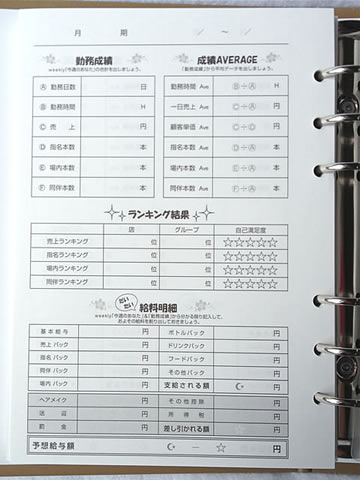 月 期 / ～ /
勤務成績
weekly「今週のあなた」の合計を出しましょう。
Ⓐ 勤務日数 日
Ⓑ 勤務時間 H
Ⓒ 売 上 円
Ⓓ 指名本数 本
Ⓔ 場内本数 本
Ⓕ 同伴本数 本
成績AVERAGE
「勤務成績」から平均データを出しましょう。
勤務時間 Ave Ⓑ÷Ⓐ H
一日売上 Ave Ⓒ÷Ⓐ 円
顧客単価 Ave 円
指名本数 Ave Ⓓ÷Ⓐ 本
場内本数 Ave Ⓔ÷Ⓐ 本
同伴本数 Ave Ⓕ÷Ⓐ 本
ランキング結果
店 グループ 自己満足度
売上ランキング 位 位 ☆☆☆☆☆
指名ランキング 位 位 ☆☆☆☆☆
場内ランキング 位 位 ☆☆☆☆☆
同伴ランキング 位 位 ☆☆☆☆☆
だいたい 給料明細
weekly「今週のあなた」&「勤務成績」から分かる限り記入して、
おおよその給料を割り出しておきましょう。
基本給与 円 ボトルバック 円
売上バック 円 ドリンクバック 円
指名バック 円 フードバック 円
同伴バック 円 その他バック 円
場内バック 円 支給される額 ☪ 円
ヘアメイク 円 その他控除 円
送迎 円 所得税 円
罰金 円 差し引かれる額 ☆ 円
予想給与額 ☪ － ☆ 円